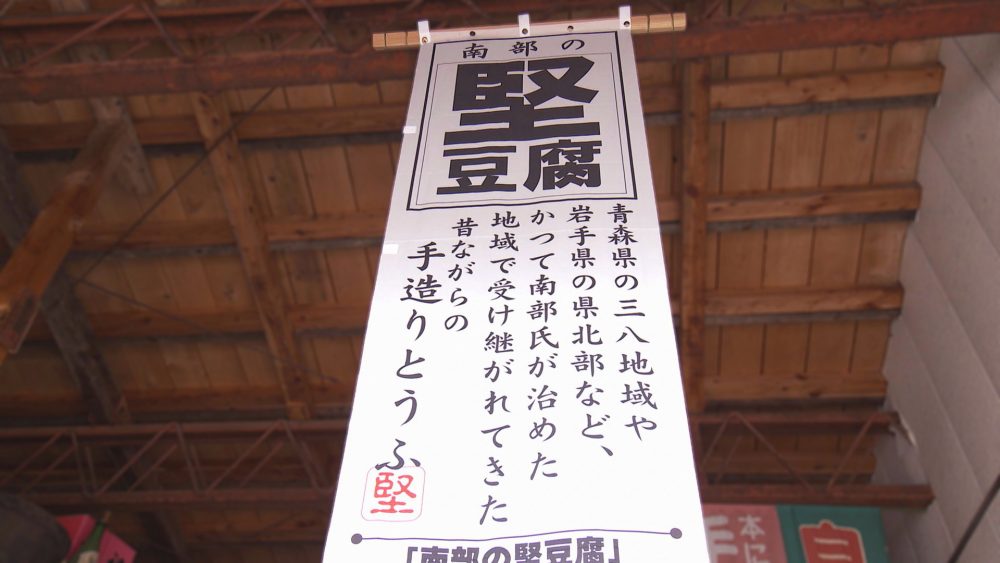 南部の
堅
豆腐
青森県の三八地域や
岩手県の県北部など、
かつて南部氏が治めた
地域で受け継がれてきた
昔ながらの
手造りとうふ
堅
「南部の堅豆腐」
本に